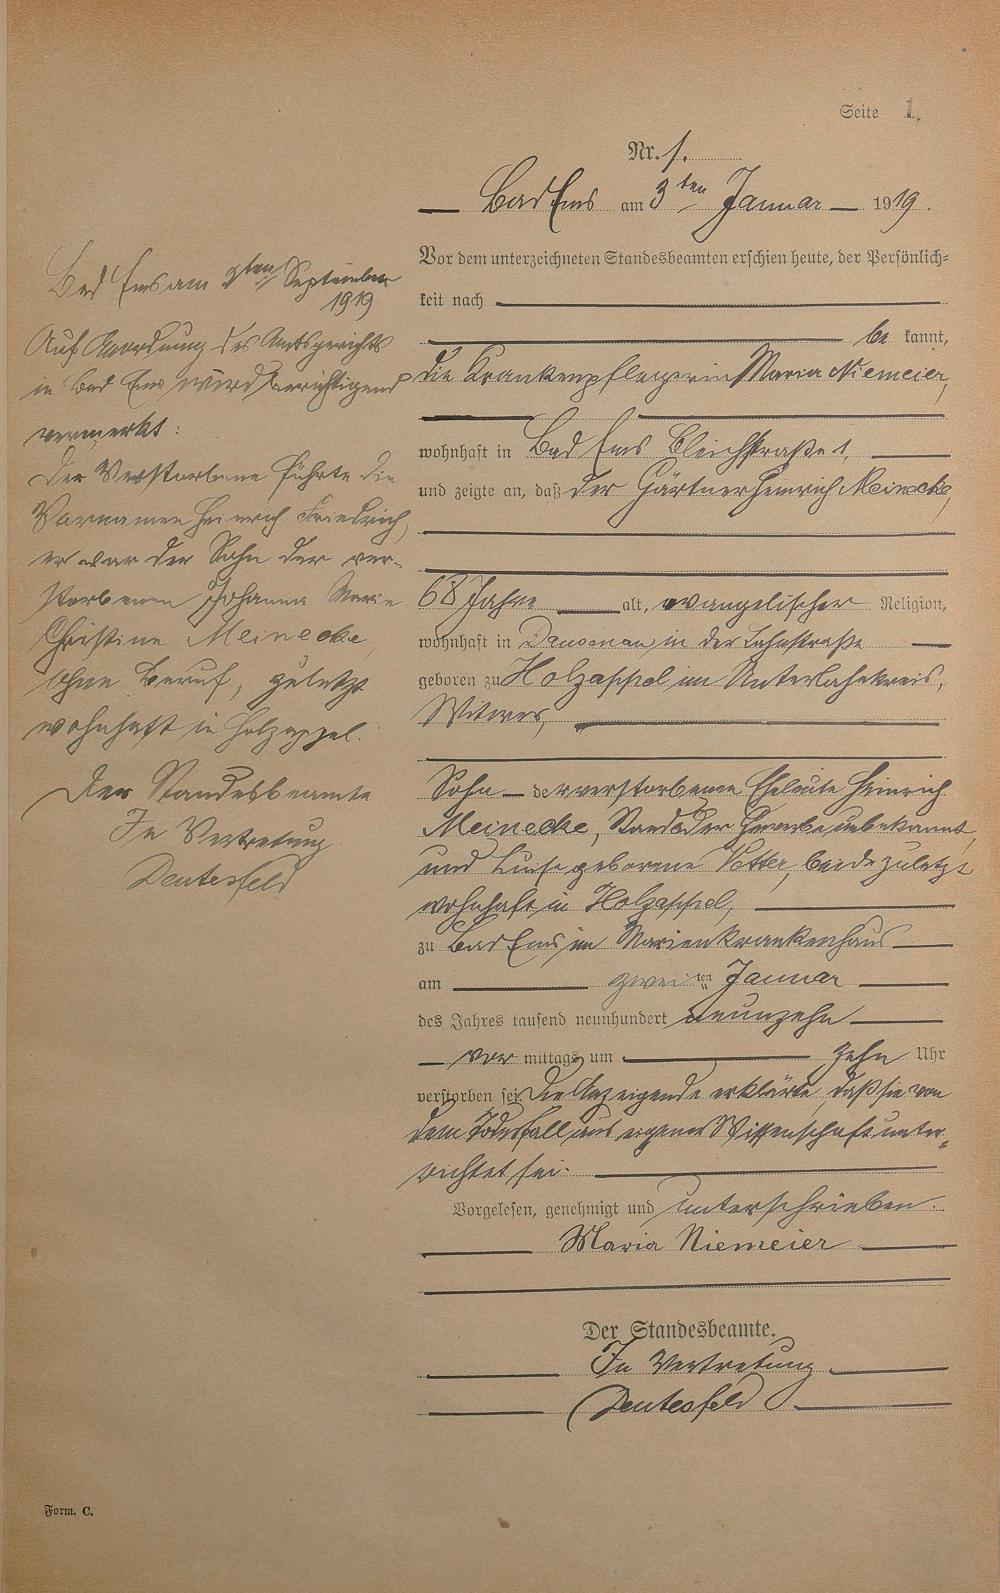 Seite 1.
Nr. 1.
Bad Ems am 3ten Januar 1919.
Vor dem unterzeichneten Standesbeamten erschien heute, der Persönlich=
keit nach
be kannt,
die Krankenpflegerin Maria Niemeier,
wohnhaft in Bad Ems Bleichstraße 1,
und zeigte an, daß der Gärtner Heinrich Meinecke,
68 Jahre alt, evangelischer Religion,
wohnhaft in Dausenau, in der Lahnstraße
geboren zu Holzappel im Unterlahnkreis,
Witwer,
Sohn der verstorbenen Eheleute Heinrich
Meinecke, Stand oder Gewerbe unbekannt,
und Luise geborene Vetter, beide zuletzt
wohnhaft in Holzappel,
zu Bad Ems im Marienkrankenhaus
am zweiten Januar
des Jahres tausend neunhundert neunzehn
vor mittags um zehn Uhr
verstorben sei. Die Anzeigende erklärte, daß sie von
dem Todesfall aus eigener Wissenschaft unter=
richtet sei.
Vorgelesen, genehmigt und unterschrieben.
Maria Niemeier
Der Standesbeamte.
In Vertretung
Deutesfeld
Bad Ems am 9ten September
1919
Auf Anordnung des Amtsgerichts
in Bad Ems wird berichtigend
vermerkt:
Der Verstorbene führte die
Vornamen Heinrich Friedrich,
er war der Sohn der ver-
storbenen Johanna Marie
Christine Meinecke,
ohne Beruf, zuletzt
wohnhaft in Holzappel.
Der Standesbeamte
In Vertretung
Deutesfeld
Form. C.